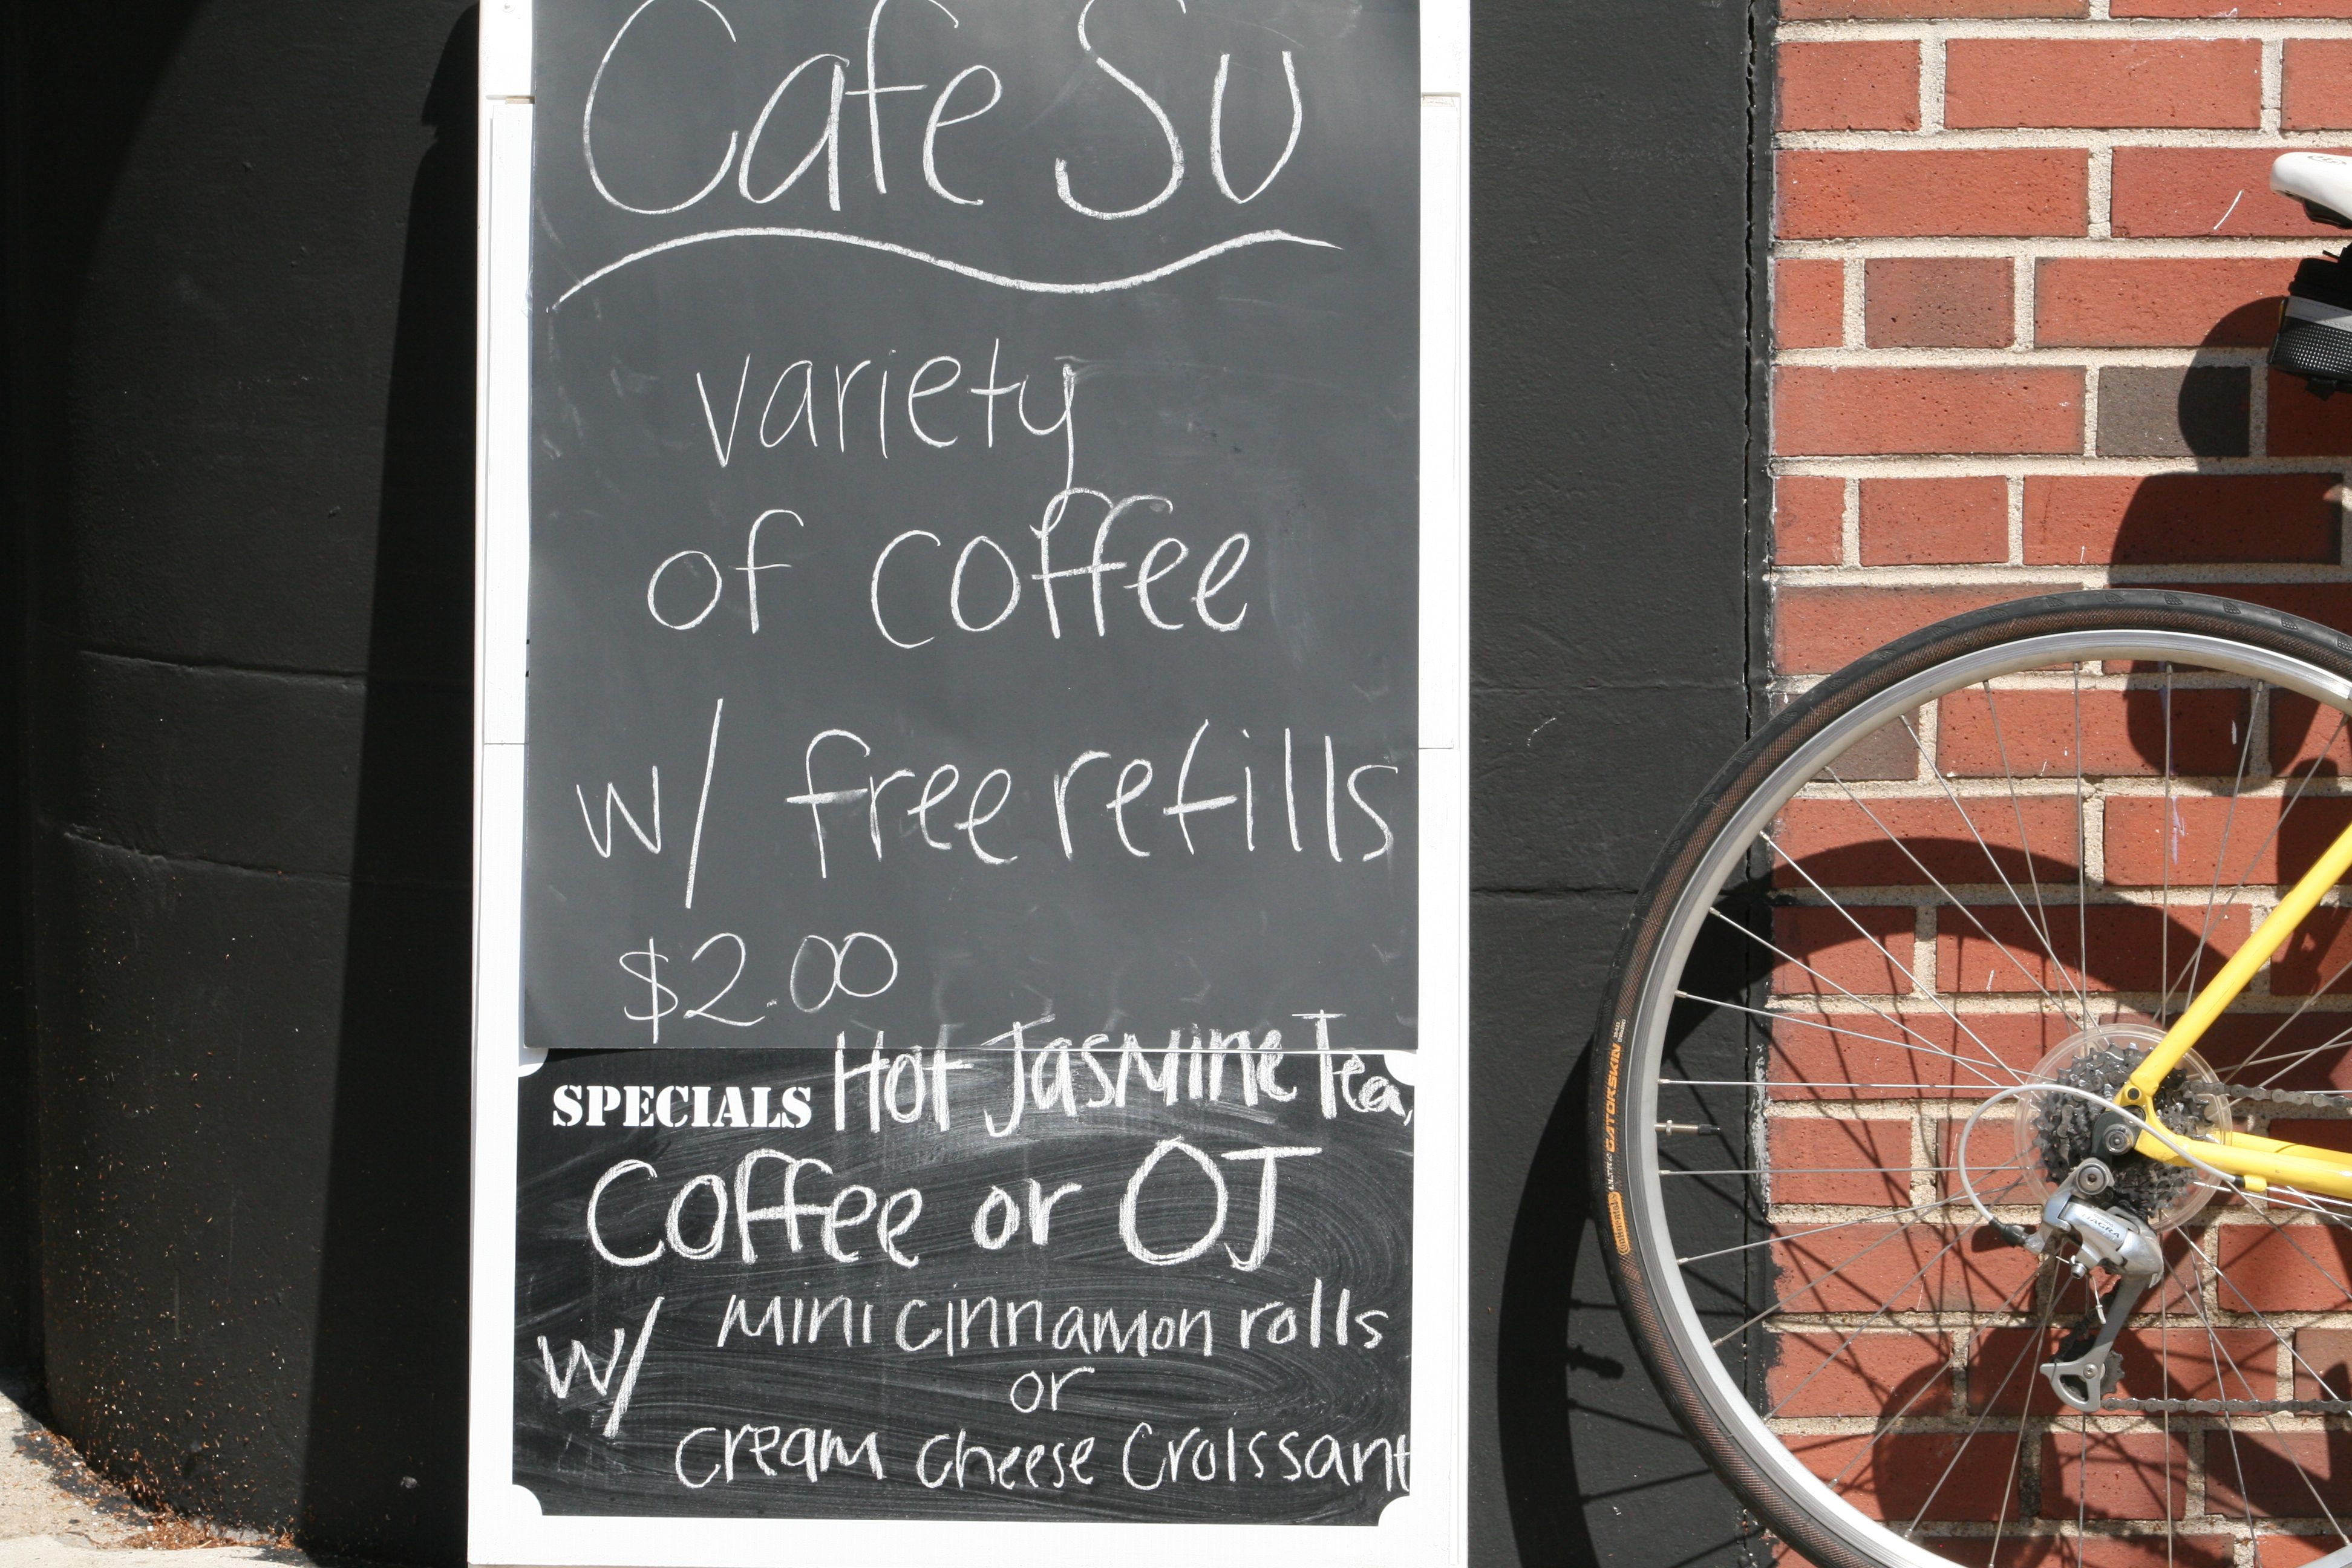 Cafe Su
variety
of coffee
w/ free refills
$2.00
SPECIALS Hot Jasmine Tea,
Coffee or OJ
w/ mini cinnamon rolls
or
cream cheese Croissant
GATORSKIN
Continental
TIAGRA